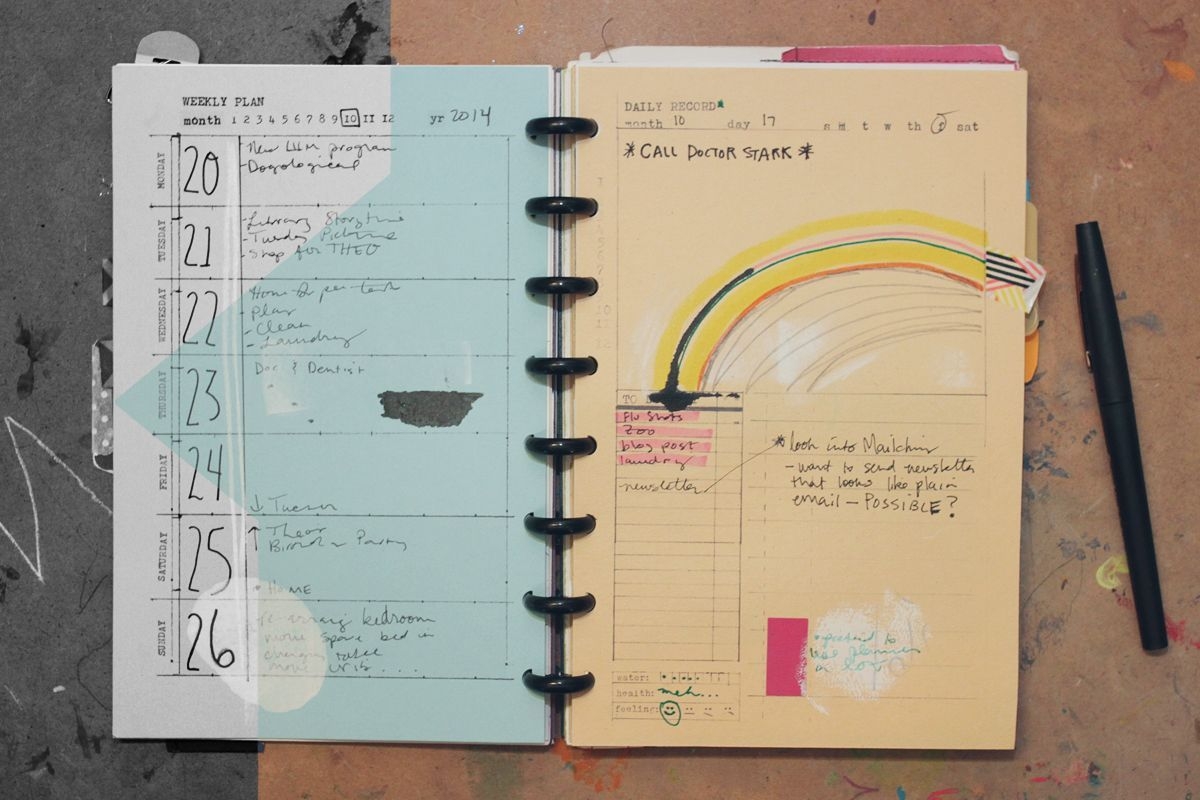 WEEKLY PLAN
month 1 2 3 4 5 6 7 8 9 10 11 12 yr 2014
MONDAY
20
-New program
-Dogological
TUESDAY
21
-Library Storytime
-Tuesday Picture
-Shop for THEO
WEDNESDAY
22
Home
-play
-Clean
-Laundry
THURSDAY
23
Doc & Dentist
FRIDAY
24
↓
SATURDAY
25
↑
Party
HOME
SUNDAY
26
bedroom
move spare bed in
table
move
DAILY RECORD*
month 10 day 17 s m t w th f sat
*CALL DOCTOR STARK*
10
11
12
TO
flu shots
zoo
blog post
laundry
newsletter
*look into Mailchimp
-want to send newsletter
that looks like plain
email - POSSIBLE?
pretend to
use planner
water:
health: meh...
feeling: